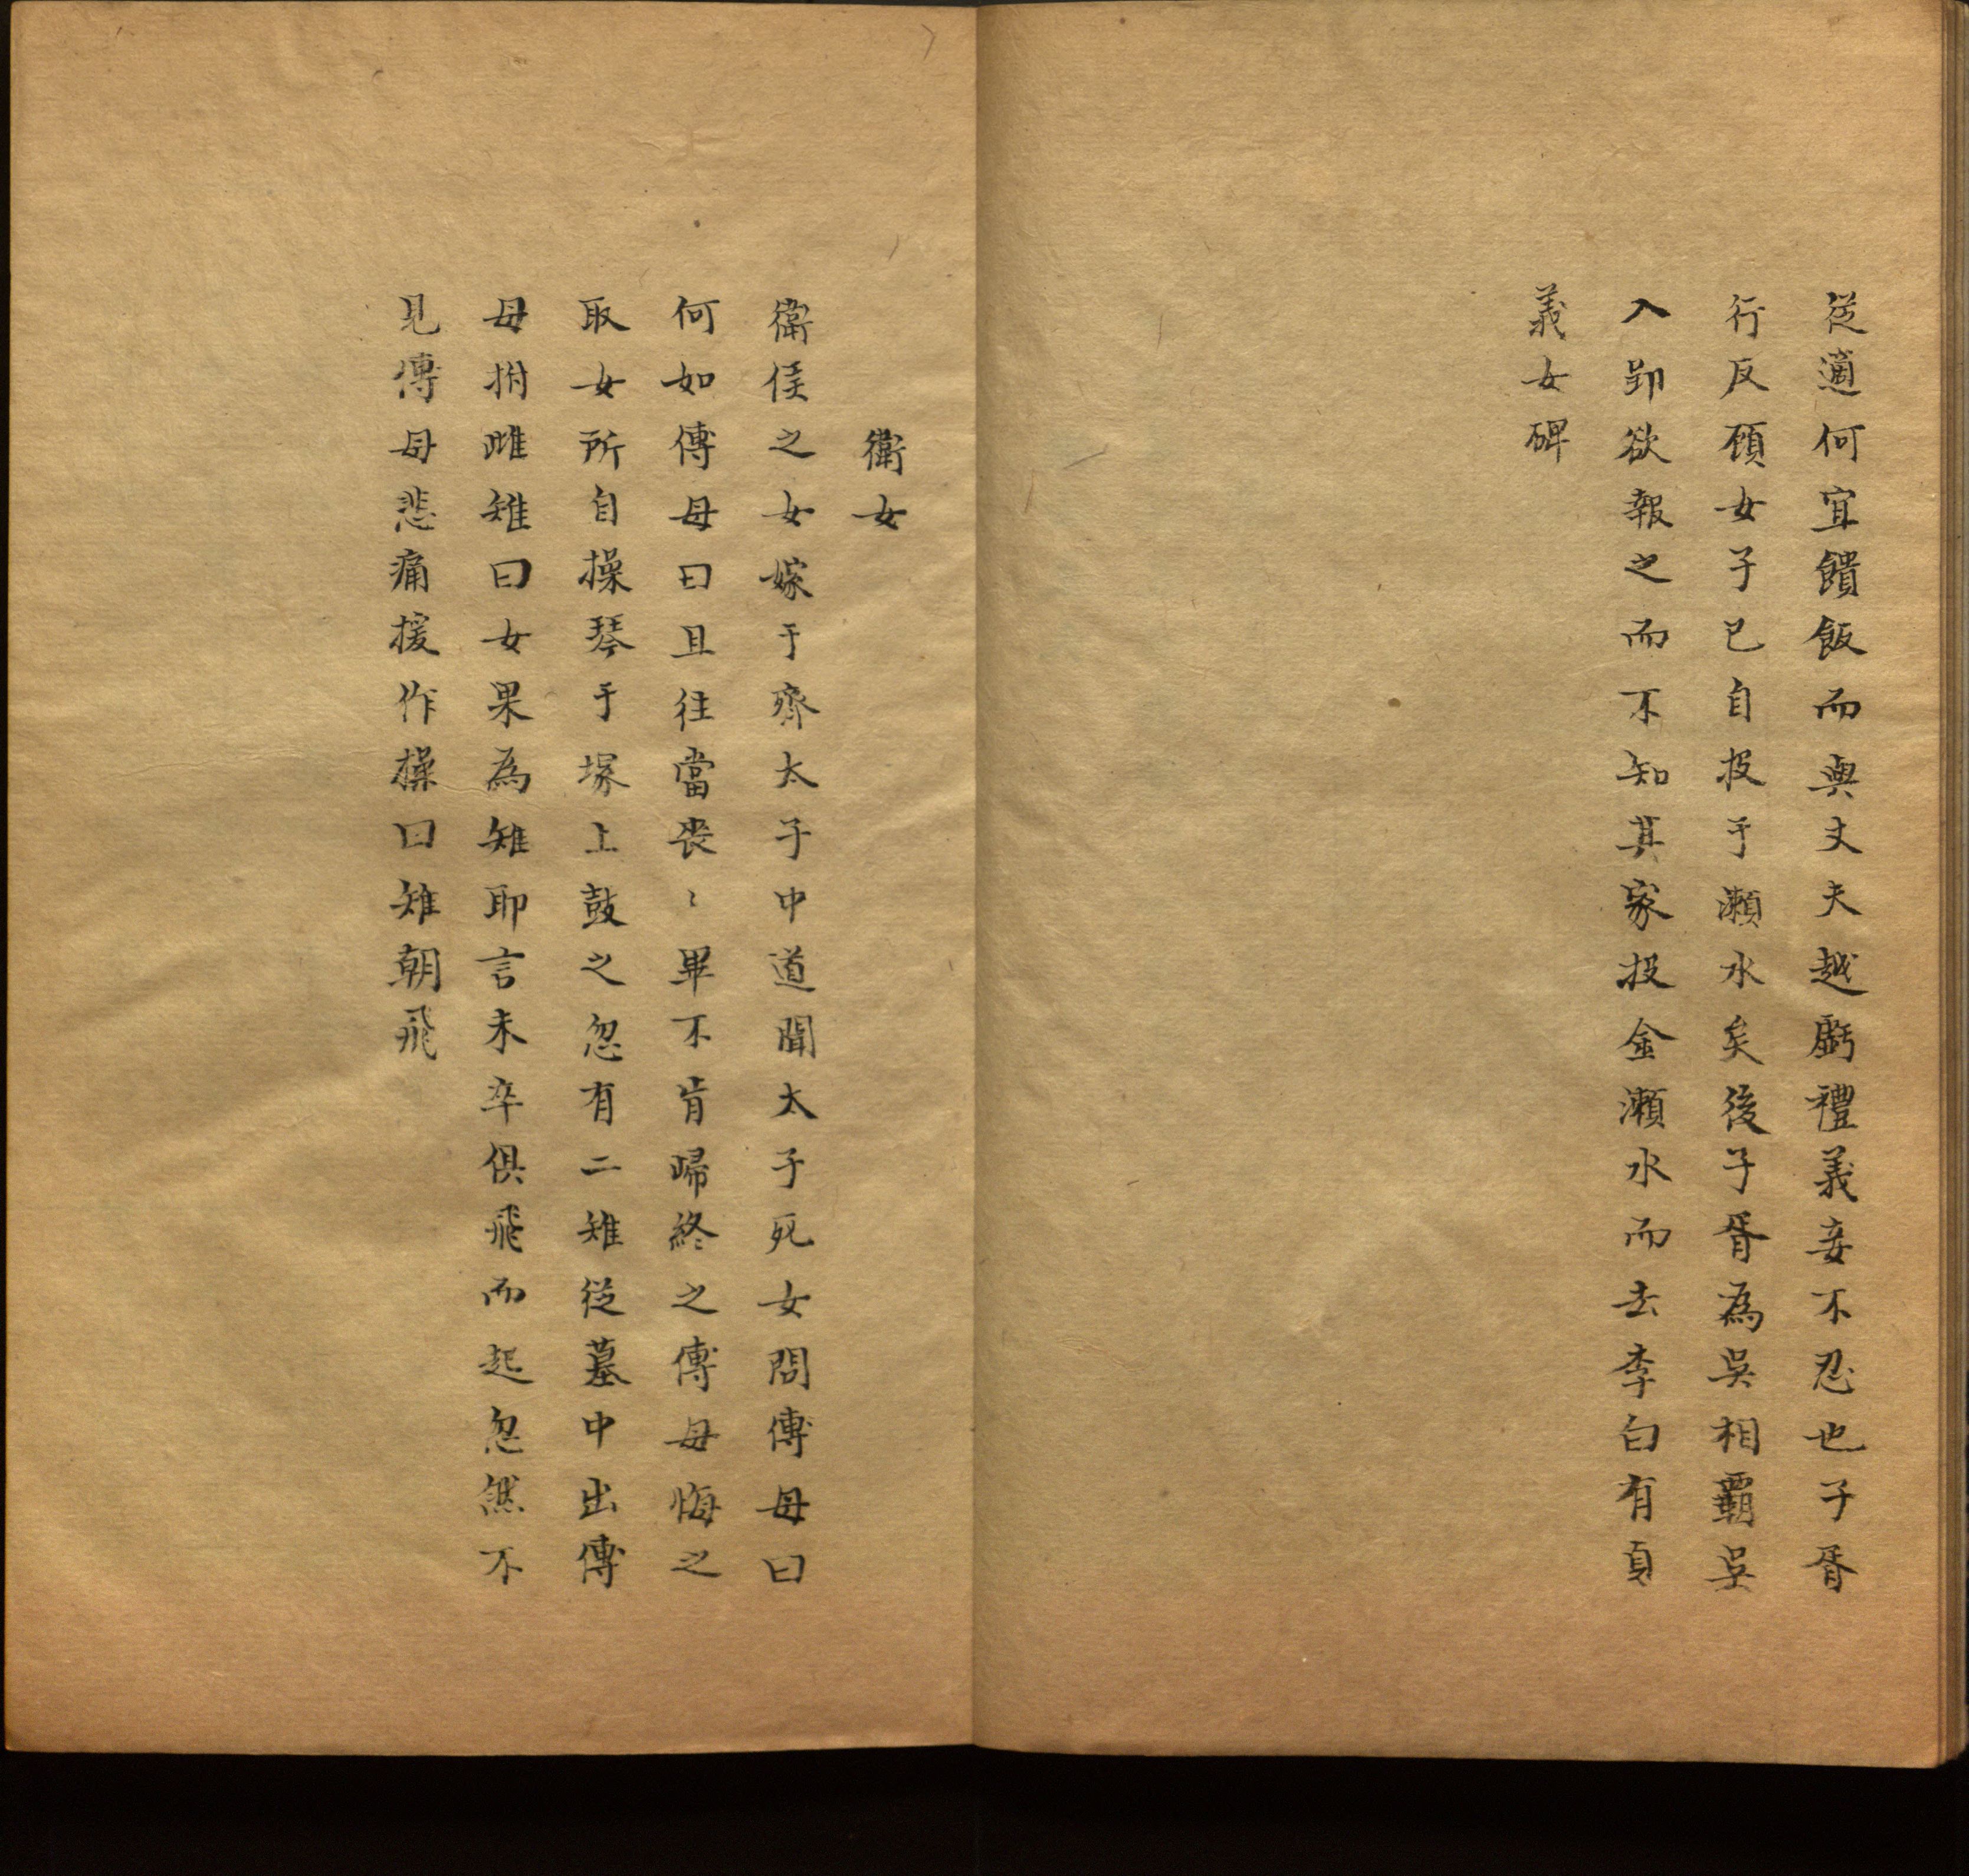 從適何宜饋飯而與丈夫越虧禮義妾不忍也子胥
行反顧女子已自投于瀨水矣後子胥為吳相霸吳
入郢欲報之而不知其家投金瀨水而去李白有貞
義女碑
衛女
衛侯之女嫁于齊太子中道聞太子死女問傅母曰
何如傅母曰且往當喪〻畢不肯歸終之傅母悔之
取女所自操琴于塚上鼓之忽有二雉從墓中出傅
母拊雌雉曰女果為雉耶言未卒俱飛而起忽然不
見傅母悲痛援作操曰雉朝飛